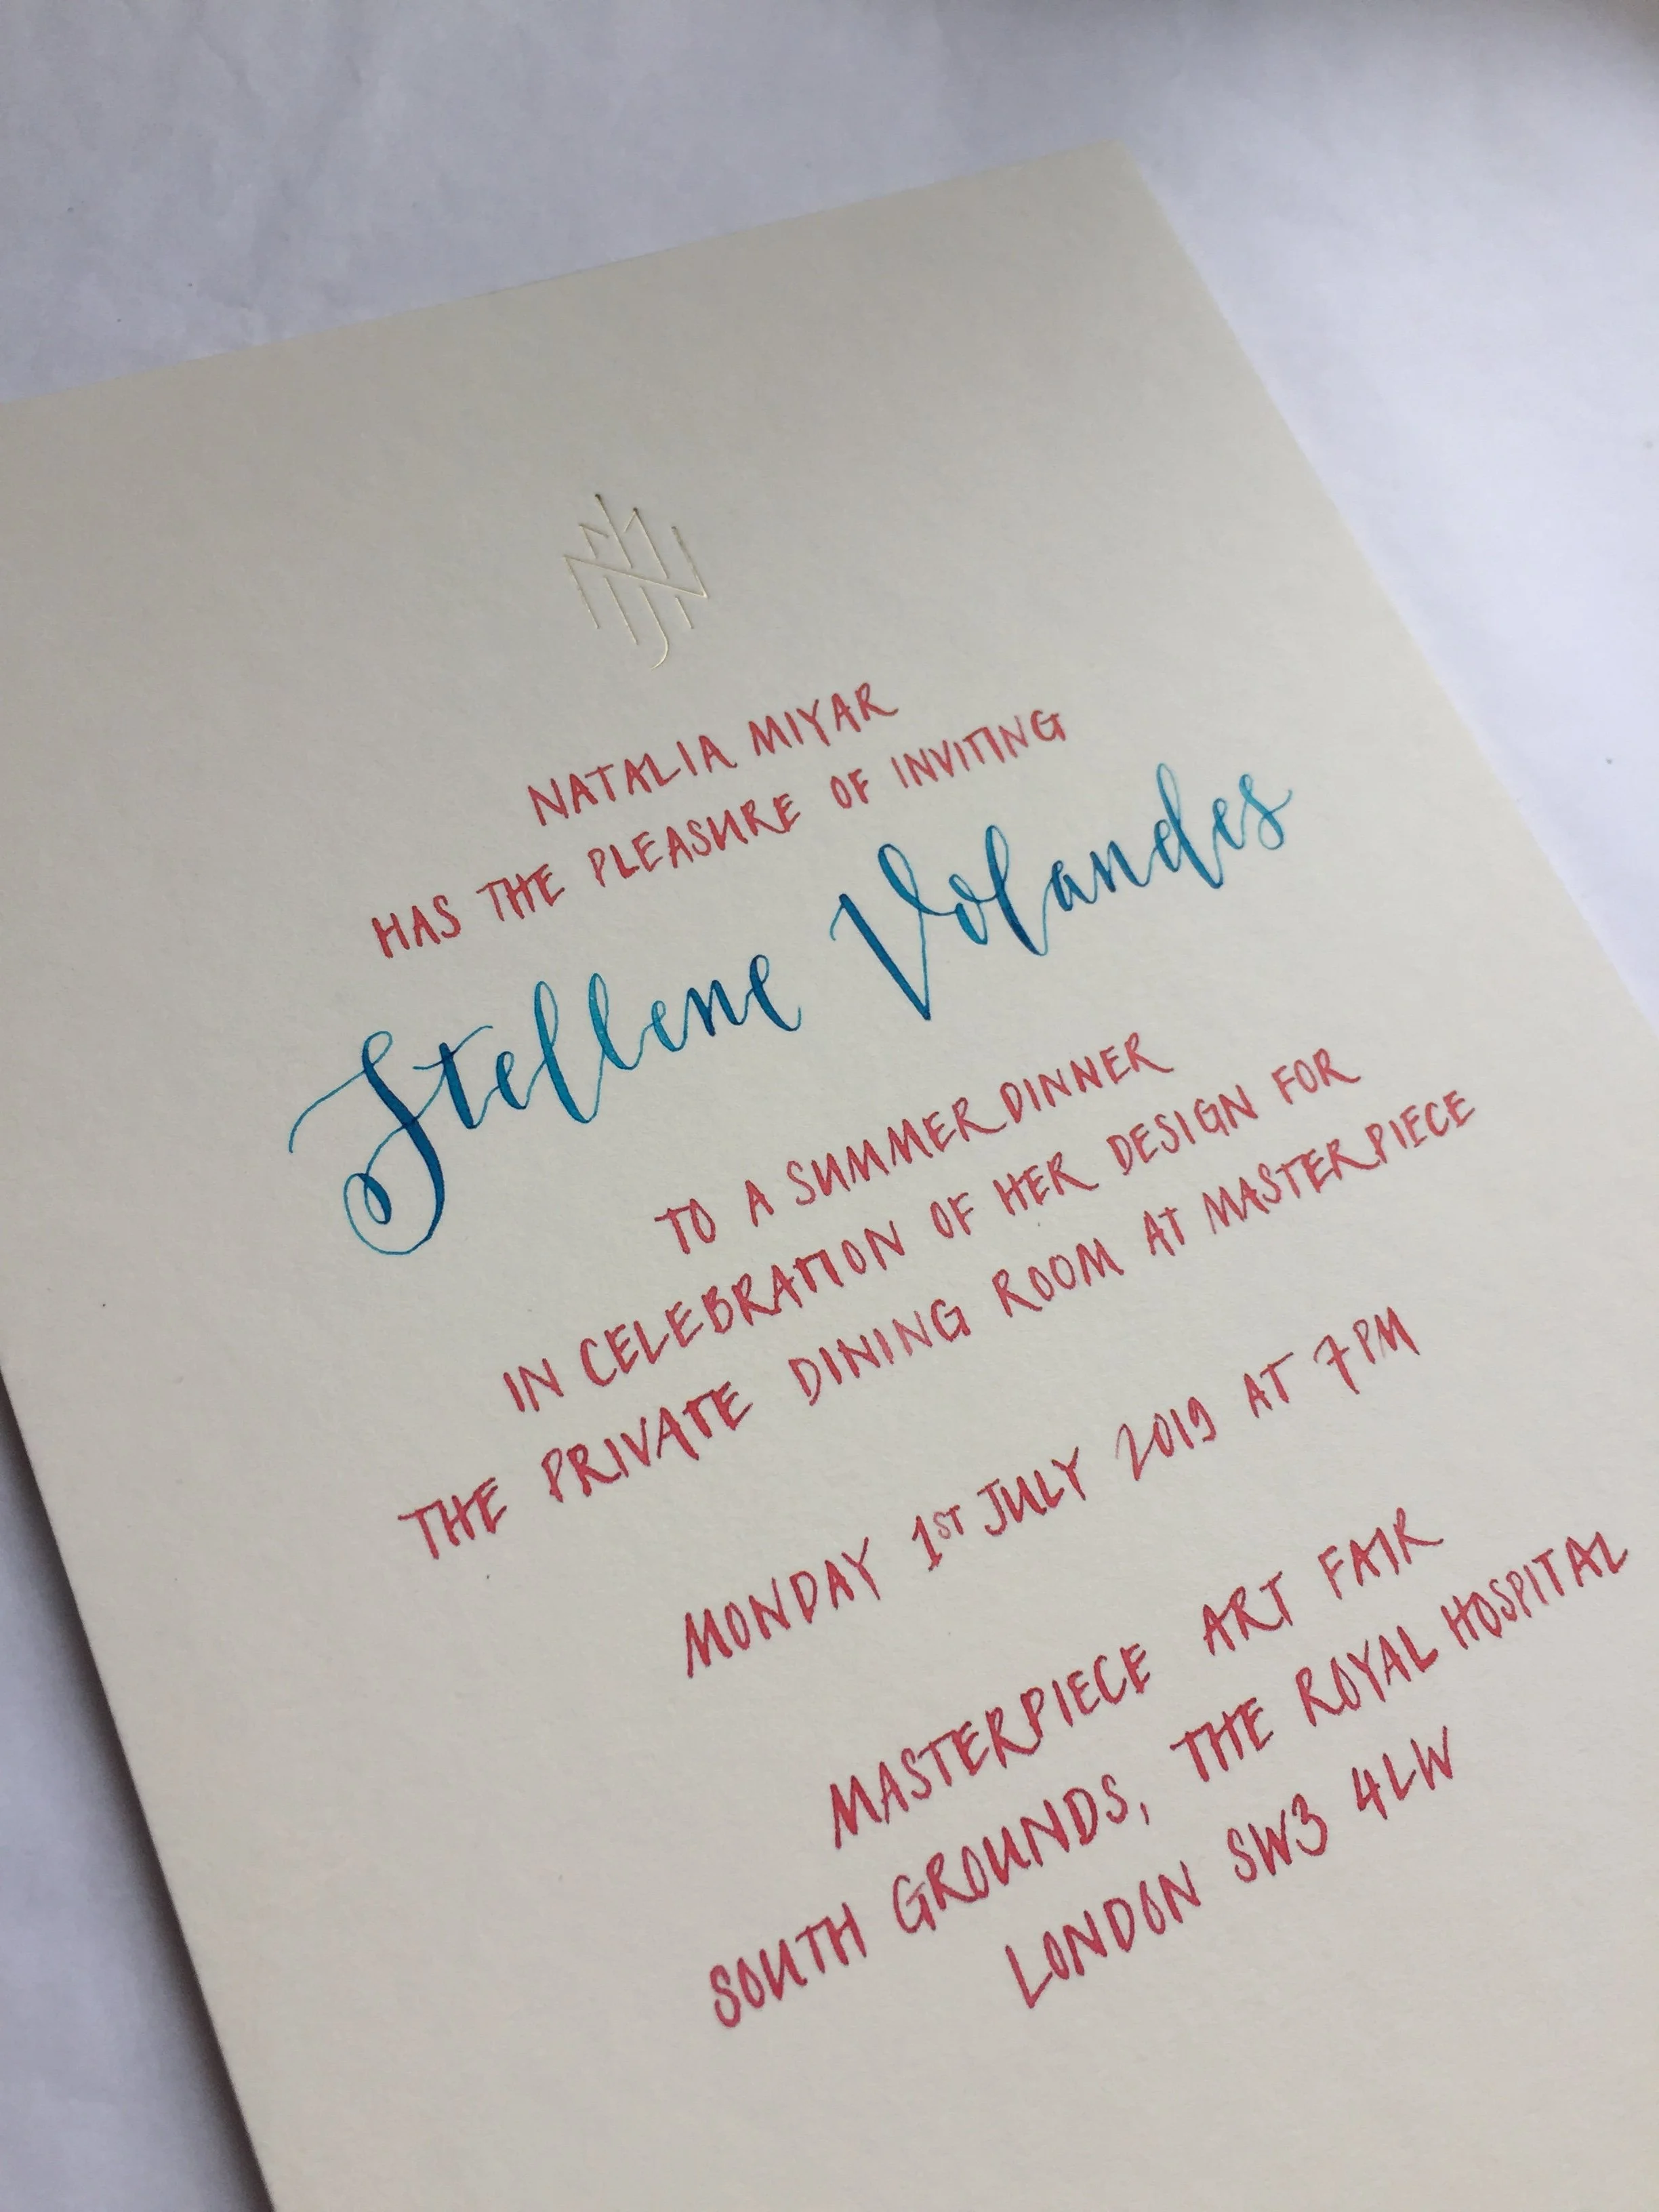 NATALIA MIYAR
HAS THE PLEASURE OF INVITING
Stellene Volandes
TO A SUMMER DINNER
IN CELEBRATION OF HER DESIGN FOR
THE PRIVATE DINING ROOM AT MASTERPIECE
MONDAY 1ST JULY 2019 AT 7PM
MASTERPIECE ART FAIR
SOUTH GROUNDS, THE ROYAL HOSPITAL
LONDON SW3 4LW